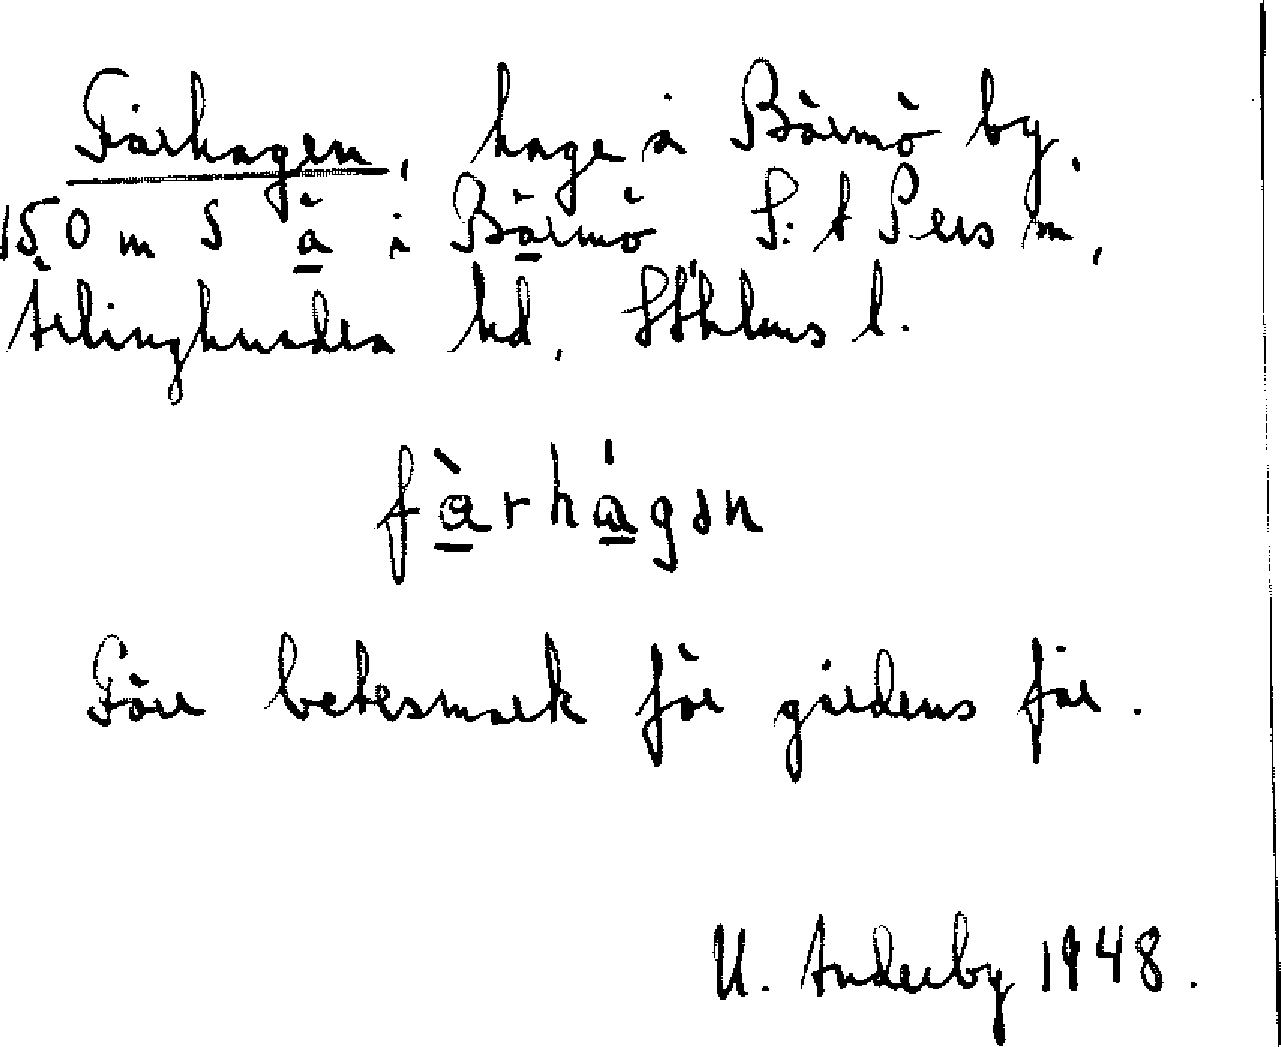 Fårhagen, hage å Bärmö by,
150 m S ä i Bärmö S:t Pers sn,
Ärlinghundra hd, Sthlms l.
fàrhágən
Förr betesmark för gårdens får.
U. Anderby 1948.